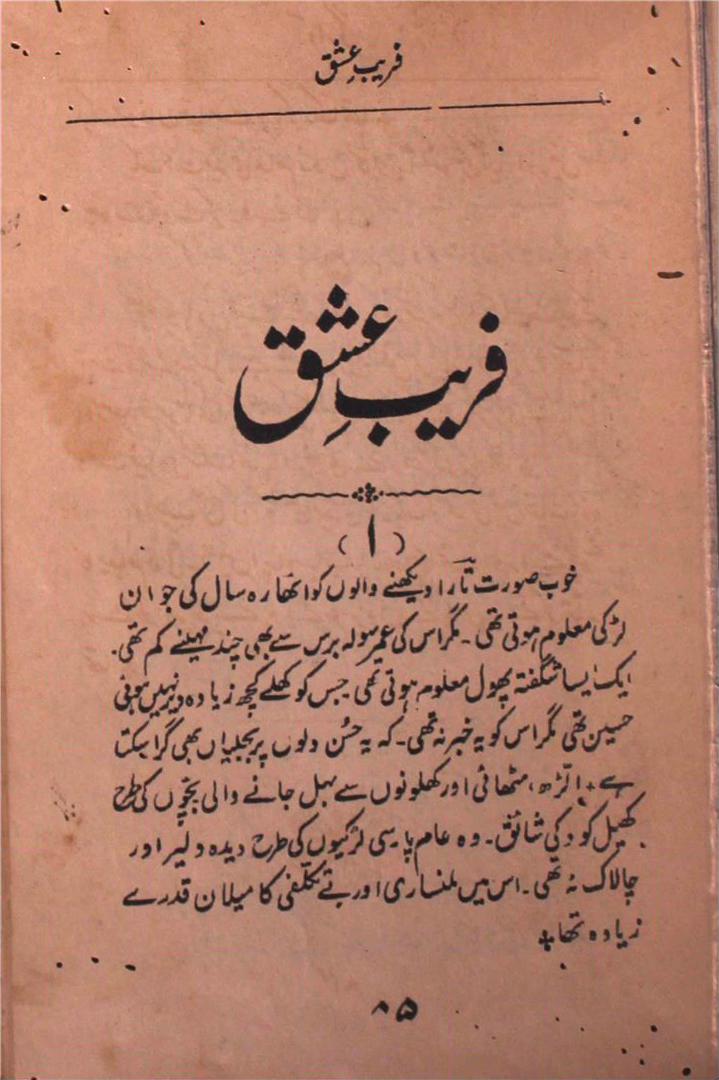 فریبِ عشق
فریبِ عشق
(۱)
خوب صورت تارا دیکھنے والوں کو اٹھارہ سال کی جوان
لڑکی معلوم ہوتی تھی۔ مگر اس کی عمر سولہ برس سے بھی چند مہینے کم تھی۔
ایک ایسا شگفتہ پھول معلوم ہوتی تھی جس کو کھلے کچھ زیادہ دیر نہیں ہوئی
حسین تھی مگر اس کو یہ خبر نہ تھی۔ کہ یہ حُسن دلوں پر بجلیاں بھی گرا سکتا
ہے + الّڑھ، مٹھائی اور کھلونوں سے بہل جانے والی بچّوں کی طرح
کھیل کود کی شائق۔ وہ عام پارسی لڑکیوں کی طرح دیدہ دلیر اور
چالاک نہ تھی۔ اس میں ملنساری اور بے تکلّفی کا میلان قدرے
زیادہ تھا +
۸۵